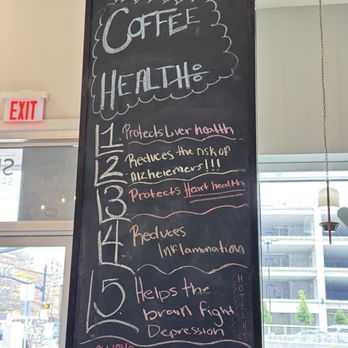 COFFEE
HEALTH:
EXIT
1. Protects Liver health
2 Reduces the risk of
Alzheiemers!!!
3 Protects Heart health
4 Reduces
Inflammation
5. Helps the
brain fight
Depression